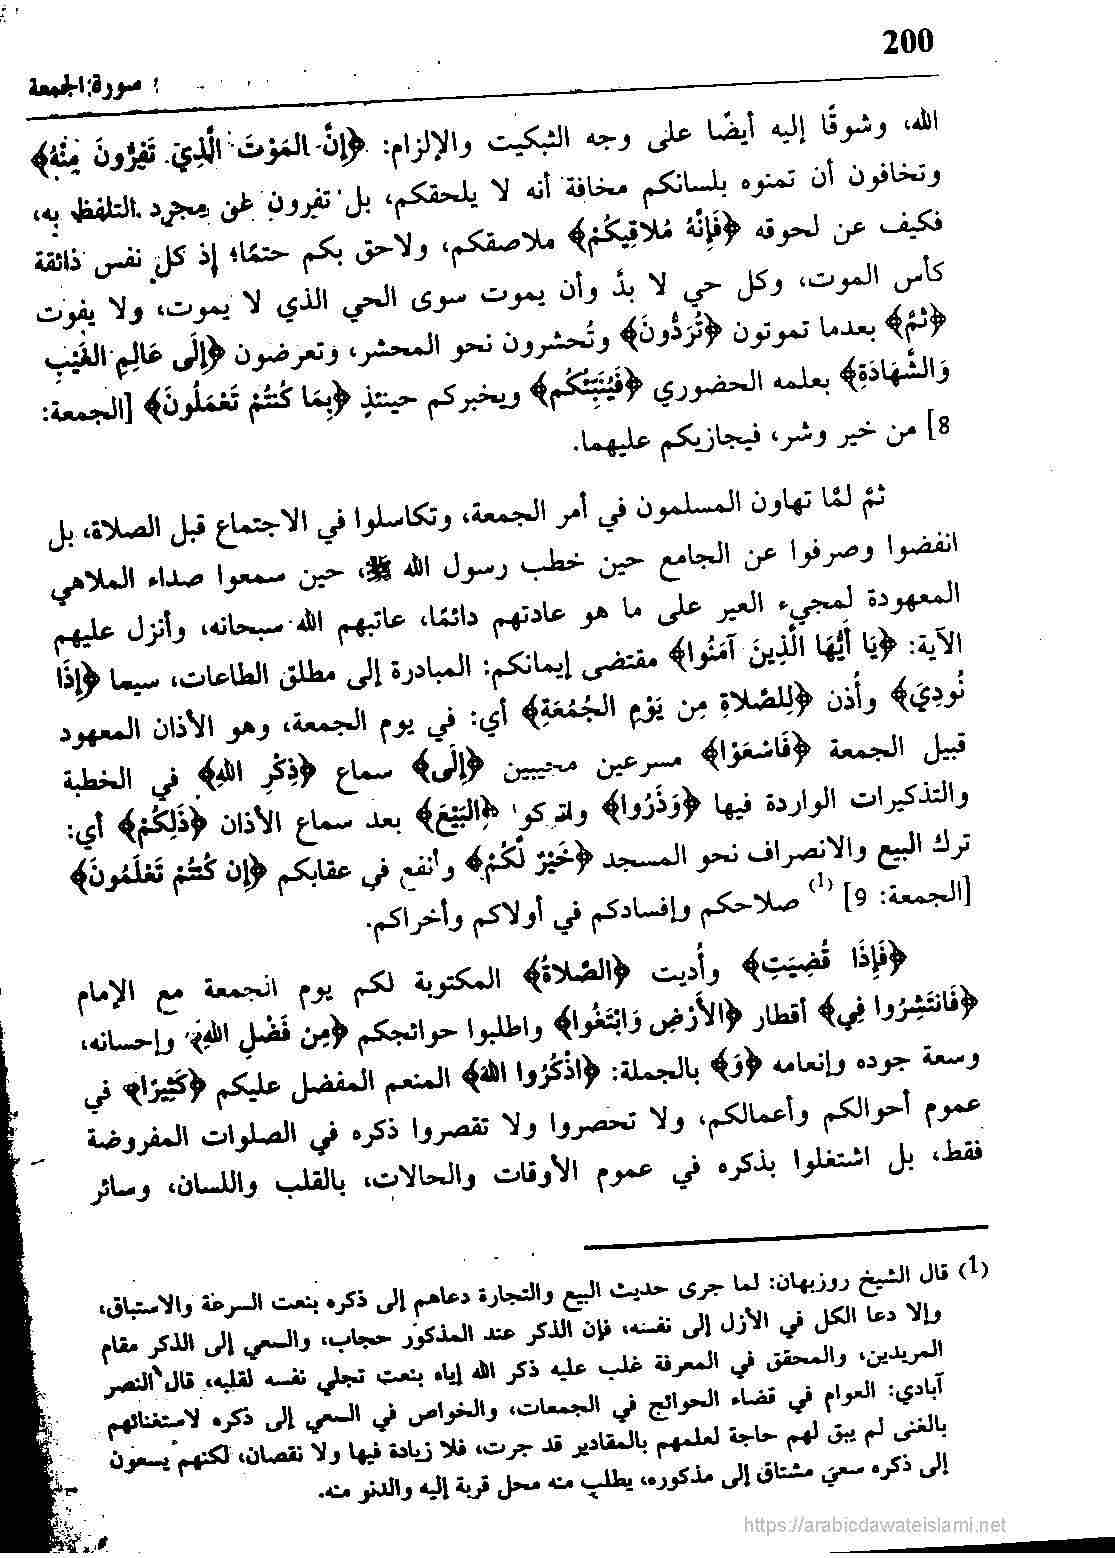 200
سورة الجمعة
الله، وشوقًا إليه أيضًا على وجه التبكيت والإلزام: ﴿إِنَّ المَوْتَ الَّذِي تَفِرُّونَ مِنْهُ﴾
وتخافون أن تمنوه بلسانكم مخافة أنه لا يلحقكم، بل تفرون عن مجرد التلفظ به،
فكيف عن لحوقه ﴿فَإِنَّهُ مُلاقِيكُمْ﴾ ملاصقكم، ولاحق بكم حتمًا؛ إذ كل نفس ذائقة
كأس الموت، وكل حي لا بدَّ وأن يموت سوى الحي الذي لا يموت، ولا يفوت
﴿ثُمَّ﴾ بعدما تموتون ﴿تُرَدُّونَ﴾ وتُحشرون نحو المحشر، وتعرضون ﴿إِلَى عَالِمِ الغَيْبِ
وَالشَّهَادَةِ﴾ بعلمه الحضوري ﴿فَيُنَبِّئُكُم﴾ ويخبركم حينئذٍ ﴿بِمَا كُنتُمْ تَعْمَلُونَ﴾ [الجمعة:
8] من خير وشر، فيجازيكم عليهما.
ثمَّ لمَّا تهاون المسلمون في أمر الجمعة، وتكاسلوا في الاجتماع قبل الصلاة، بل
انفضوا وصرفوا عن الجامع حين خطب رسول الله ﷺ، حين سمعوا صداء الملاهي
المعهودة لِمجيء العير على ما هو عادتهم دائمًا، عاتبهم الله سبحانه، وأنزل عليهم
الآية: ﴿يَا أَيُّهَا الَّذِينَ آمَنُوا﴾ مقتضى إيمانكم: المبادرة إلى مطلق الطاعات، سيما ﴿إِذَا
نُودِيَ﴾ وأُذن ﴿لِلصَّلاةِ مِن يَوْمِ الجُمُعَةِ﴾ أي: في يوم الجمعة، وهو الأذان المعهود
قبيل الجمعة ﴿فَاسْعَوْا﴾ مسرعين مجيبين ﴿إِلَى﴾ سماع ﴿ذِكْرِ اللهِ﴾ في الخطبة
والتذكيرات الواردة فيها ﴿وَذَرُوا﴾ واتركوا ﴿البَيْعَ﴾ بعد سماع الأذان ﴿ذَلِكُمْ﴾ أي:
ترك البيع والانصراف نحو المسجد ﴿خَيْرٌ لَّكُمْ﴾ وأنفع في عقابكم ﴿إِن كُنتُمْ تَعْلَمُونَ﴾
[الجمعة: 9] (1) صلاحكم وإفسادكم في أولاكم وأخراكم.
﴿فَإِذَا قُضِيَتِ﴾ وأُديت ﴿الصَّلاةُ﴾ المكتوبة لكم يوم الجمعة مع الإمام
﴿فَانتَشِرُوا فِي﴾ أقطار ﴿الأَرْضِ وَابْتَغُوا﴾ واطلبوا حوائجكم ﴿مِن فَضْلِ اللهِ﴾ وإحسانه،
وسعة جوده وإنعامه ﴿وَ﴾ بالجملة: ﴿اذْكُرُوا اللهَ﴾ المنعم المفضل عليكم ﴿كَثِيرًا﴾ في
عموم أحوالكم وأعمالكم، ولا تحصروا ولا تقصروا ذكره في الصلوات المفروضة
فقط، بل اشتغلوا بذكره في عموم الأوقات والحالات، بالقلب واللسان، وسائر
(1) قال الشيخ روزبهان: لما جرى حديث البيع والتجارة دعاهم إلى ذكره بنعت السرعة والاستباق،
وإلا دعا الكل في الأزل إلى نفسه، فإن الذكر عند المذكور حجاب، والسعي إلى الذكر مقام
المريدين، والمحقق في المعرفة غلب عليه ذكر الله إياه بنعت تجلي نفسه لقلبه، قال النصر
آبادي: العوام في قضاء الحوائج في الجمعات، والخواص في السعي إلى ذكره لاستغنائهم
بالغنى لم يبق لهم حاجة لعلمهم بالمقادير قد جرت، فلا زيادة فيها ولا نقصان، لكنهم يسعون
إلى ذكره سعيَ مشتاق إلى مذكوره، يطلب منه محل قربة إليه والدنو منه.
https://arabicdawateislami.net